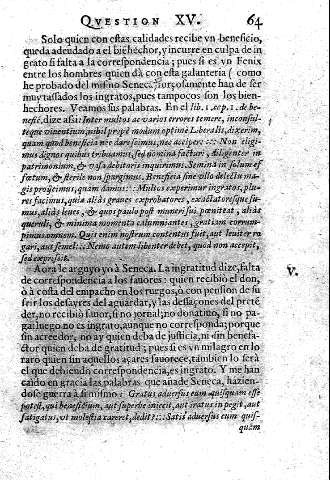 QVESTION XV. 64
Solo quien con estas calidades recibe vn beneficio,
queda adeudado a el biẽhechor, y incurre en culpa de in-
grato si falta a la correspondencia; pues si es vn Fenix
entre los hombres quien dà con esta galanteria (como
he probado del mismo Seneca) forçosamente han de ser
muy tassados los ingratos, pues tampoco son los bien-
hechores. Veamos sus palabras. En el lib. 1. cap. 1. de bene-
fic. dize assi: Inter multos ac varios errores temere, inconsul-
teque viventium, nihil propè modum optime Liberalis, dixerim,
quam quod beneficia nec dare scimus, nec accipere ::: Non eligi-
mus dignos quibus tribuamus, sed nomina facturi, diligenter in
patrimonium, & vasa debitoris inquirimus. Semina in solum ef
fœtum, & sterile non spargimus. Beneficia sine vllo delectu ma-
gis proijcimus, quam damus ::: Multos experimur ingratos, plu-
res facimus, quia aliàs graves exprobatores, exactoresque su-
mus, aliàs leues, & quos paulo post muneris sui pœnitet, aliàs
queruli, & minima momenta calumniantes, gratiam corrum-
pimus omnem. Quit enim nostrum contentus fuit, aut leuiter ro
gari, aut semel ::: Nemo autem libenter debet, quod non accepit,
sed expressit.
Aora le arguyo yo à Seneca. La ingratitud dize, falta
de correspondencia a los fauores: quien recibiò el don,
ò à costa del empacho en los ruegos, ò con pension de su
frir los desayres del aguardar, y las dessaçones del pretẽ
der, no recibiò fauor, si no jornal; no donatiuo, si no pa-
ga: luego no es ingrato, aunque no corresponda; porque
sin acreedor, no ay quien deba de justicia, ni sin benefa-
ctor quien deba de gratitud; pues si es vn milagro en lo
raro quien sin aquellos açares fauorece, tambien lo serà
el que debiendo correspondencia, es ingrato. Y me han
caido en gracia las palabras que añade Seneca, hazien-
dose guerra à si mismo: Gratus aduersus eum quisquam esse
potest, qui beneficium, aut superbe iniecit, aut iratus impegit, aut
fatigatus, vt molestia careret, dedit? ::: Satis aduersus eum quis-
quàm
V.